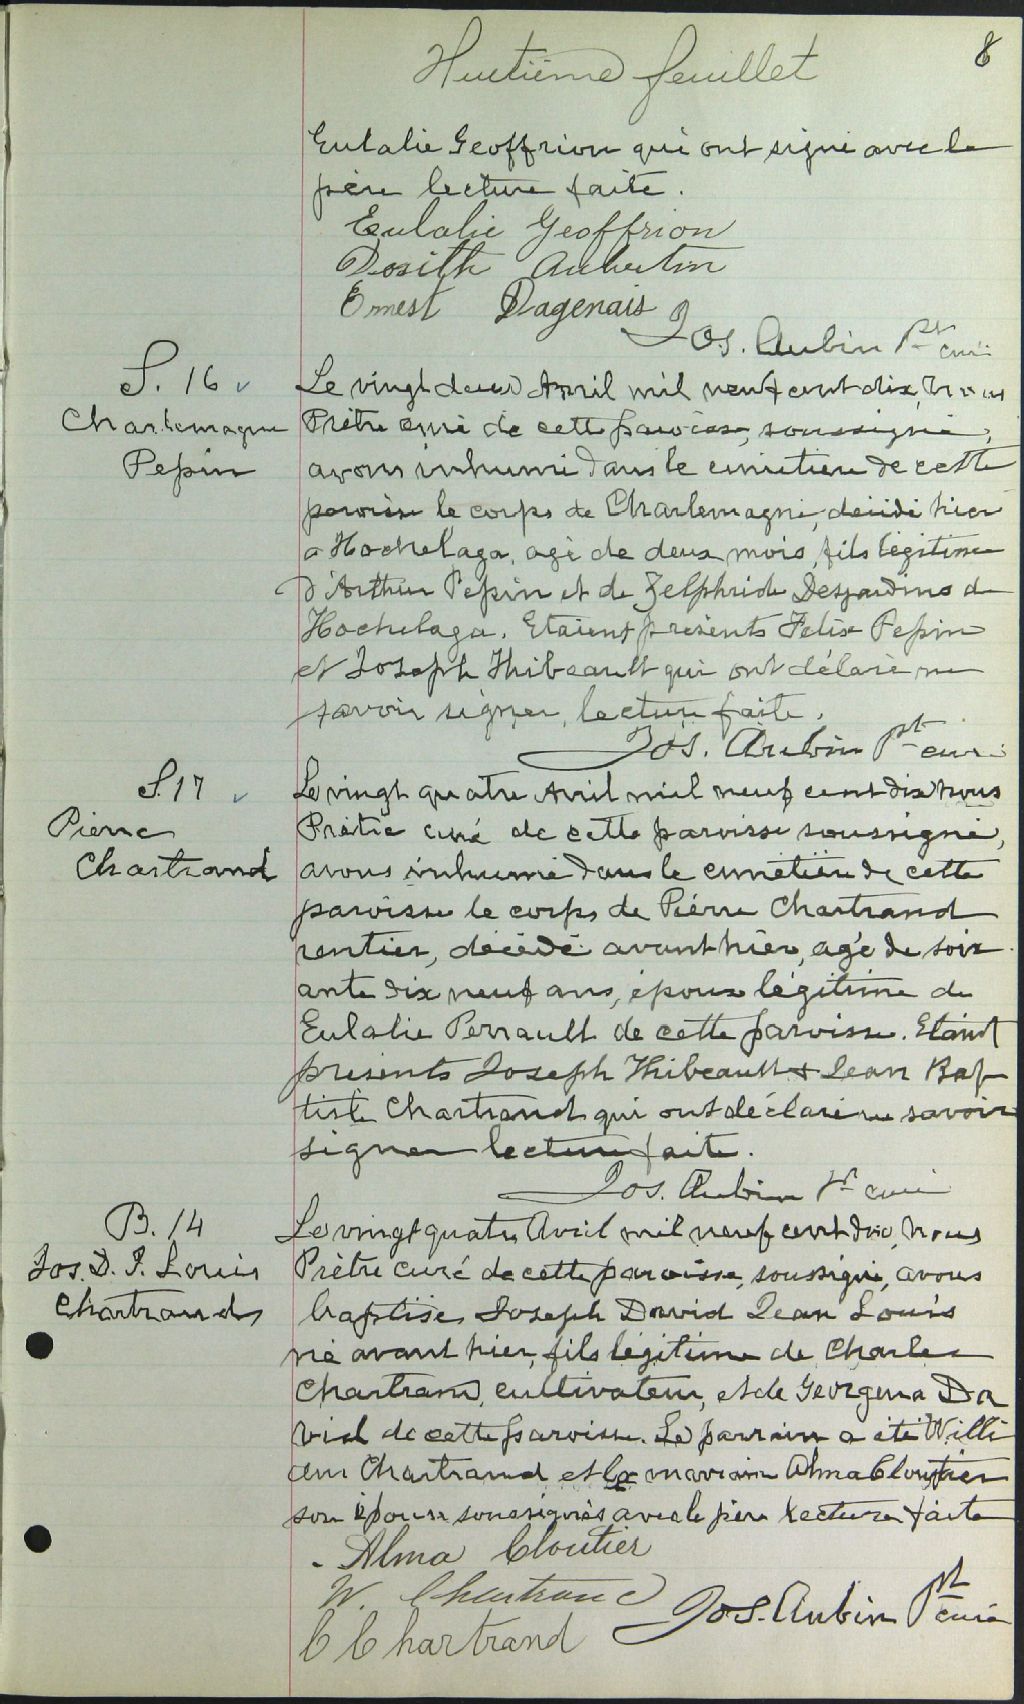 Huitième feuillet
8
Eulalie Geoffrion qui ont signé avec le
père lecture faite.
Eulalie Geoffrion
Dosith Aubertin
Ernest Dagenais
Jos. Aubin Ptre curé
S. 16
Charlemagne
Pepin
Le vingt deux Avril mil neuf cent dix, nous
Prêtre curé de cette paroisse, soussigné,
avons inhumé dans le cimetière de cette
paroisse le corps de Charlemagne, décédé hier
a Hochelaga, agé de deux mois, fils légitime
d'Arthur Pepin et de Zelphride Desjardins de
Hochelaga. Etaient présents Felix Pepin
et Joseph Thibeault qui ont déclaré ne
savoir signer, lecture faite.
Jos. Aubin Pt curé
S. 17
Pierre
Chartrand
Le vingt quatre Avril mil neuf cent dix nous
Prêtre curé de cette paroisse soussigné,
avons inhumé dans le cimetière de cette
paroisse le corps de Pierre Chartrand
rentier, décédé avant hier, agé de soix
ante dix neuf ans, époux légitime de
Eulalie Perrault de cette paroisse. Etaient
présents Joseph Thibeault & Jean Bap
tiste Chartrand qui ont déclaré ne savoir
signer lecture faite.
Jos. Aubin Pt curé
B. 14
Jos. D. J. Louis
Chartrand
Le vingt quatre Avril mil neuf cent dix, nous
Prêtre curé de cette paroisse, soussigné, avons
baptisé Joseph David Jean Louis
né avant hier, fils légitime de Charles
Chartrand, cultivateur, et de Georgena Da
vid de cette paroisse. Le parrain a été Willi
am Chartrand et la marraine Alma Cloutier
son épouse soussignés avec le père lecture faite
Alma Cloutier
W. Chartrand
C Chartrand
Jos. Aubin Pt curé